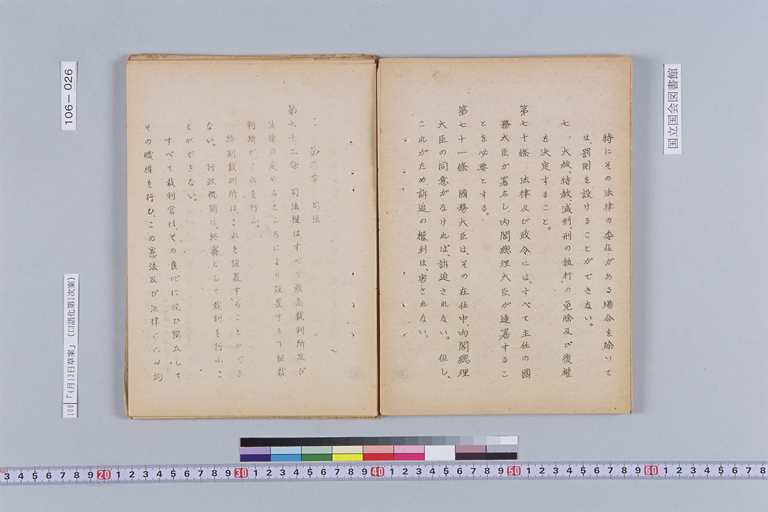 特にその法律の委任がある場合を除いて
は、罰則を設けることができない。
七、大赦、特赦、減刑、刑の執行の免除及び復權
を決定すること。
第七十條 法律及び政令には、すべて主任の國
務大臣が署名し、内閣總理大臣が連署するこ
とを必要とする。
第七十一條 國務大臣は、その在任中、内閣總理
大臣の同意がなければ、訴追されない。但し、
これがため、訴追の權利は、害されない。
第六章 司法
第七十二條 司法權は、すべて最高裁判所及び
法律の定めるところにより設置する下級裁
判所が、これを行ふ。
特別裁判所は、これを設置することができ
ない。行政機關は、終審として裁判を行ふこ
とができない。
すべて裁判官は、その良心に從ひ獨立して
その職權を行ひ、この憲法及び法律にのみ拘
国立国会図書館
106-026
100「4月13日草案」(口語化第2次案)
3 4 5 6 7 8 9 20 1 2 3 4 5 6 7 8 9 30 1 2 3 4 5 6 7 8 9 40 1 2 3 4 5 6 7 8 9 50 1 2 3 4 5 6 7 8 9 60 1 2 3 4 5 6 7 8